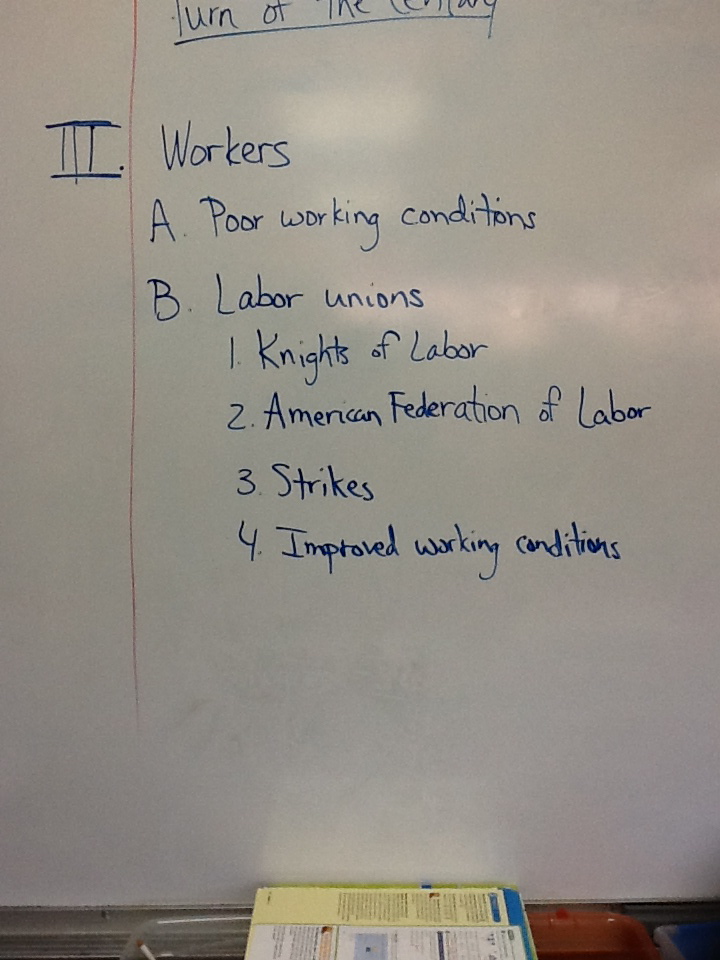 Turn of The Century
III. Workers
A. Poor working conditions
B. Labor unions
1. Knights of Labor
2. American Federation of Labor
3. Strikes
4. Improved working conditions